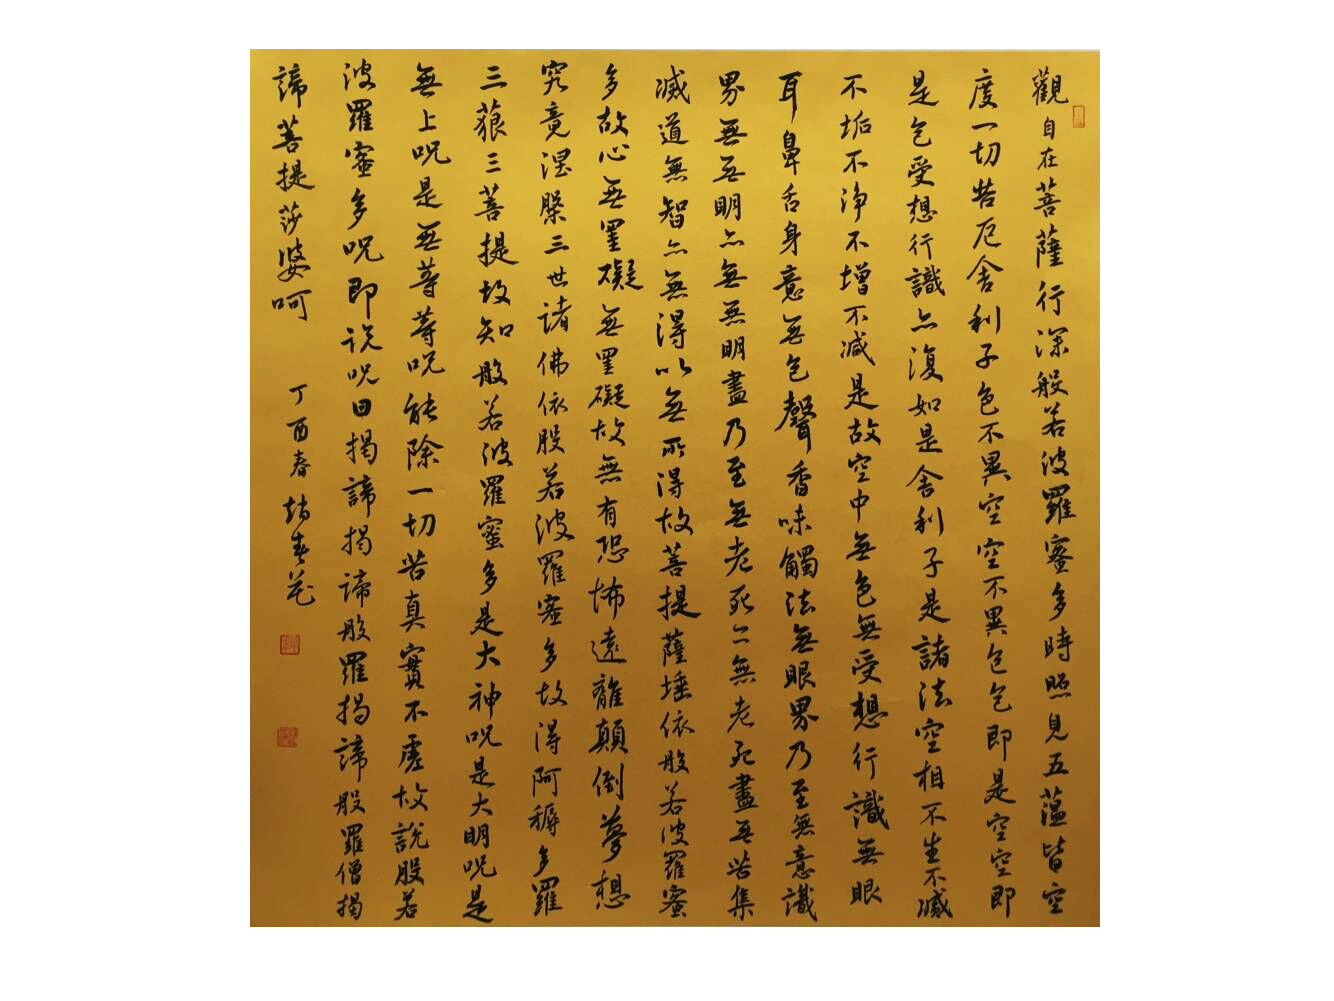 觀自在菩薩行深般若波羅蜜多時照見五蘊皆空
度一切苦厄舍利子色不異空空不異色色即是空空即
是色受想行識亦復如是舍利子是諸法空相不生不滅
不垢不淨不增不減是故空中無色無受想行識無眼
耳鼻舌身意無色聲香味觸法無眼界乃至無意識
界無無明亦無無明盡乃至無老死亦無老死盡無苦集
滅道無智亦無得以無所得故菩提薩埵依般若波羅蜜
多故心無罣礙無罣礙故無有恐怖遠離顛倒夢想
究竟涅槃三世諸佛依般若波羅蜜多故得阿耨多羅
三藐三菩提故知般若波羅蜜多是大神呪是大明呪是
無上呪是無等等呪能除一切苦真實不虛故說般若
波羅蜜多呪即說呪曰揭諦揭諦般羅揭諦般羅僧揭
諦菩提莎婆呵
丁酉春